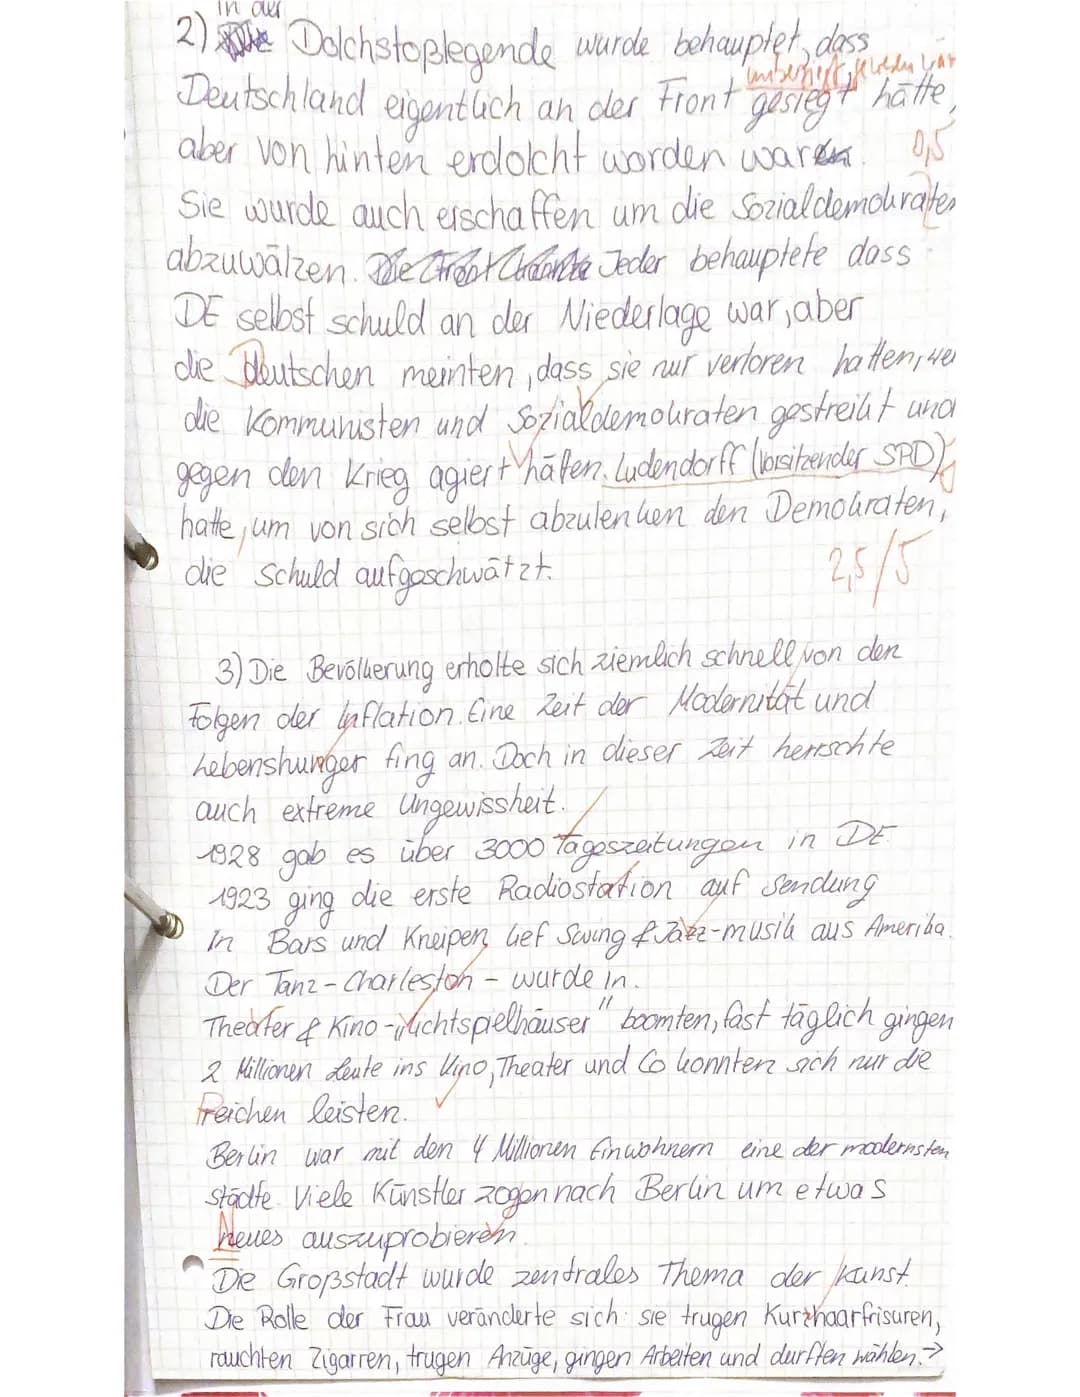 in der
2) Dolchstoßlegende wurde behauptet, dass
unbesiegt gewesen wär
Deutschland eigentlich an der Front gesiegt hätte,
aber von hinten erdolcht worden war.
0,5
Sie wurde auch erschaffen um die Sozialdemokraten
abzuwälzen. Jeder behauptete dass
DE selbst schuld an der Niederlage war, aber
die Deutschen meinten, dass sie nur verloren hatten, wei
die Kommunisten und Sozialdemokraten gestreikt und
gegen den Krieg agiert hätten. Ludendorff (Vorsitzender SPD)
hatte, um von sich selbst abzulenken den Demokraten,
die Schuld aufgeschwätzt.
2,5/5
3) Die Bevölkerung erholte sich ziemlich schnell von den
Folgen der Inflation. Eine Zeit der Modernität und
Lebenshunger fing an. Doch in dieser Zeit herrschte
auch extreme Ungewissheit.
1928 gab es über 3000 Tageszeitungen in DE.
1923 ging die erste Radiostation auf Sendung
In Bars und Kneipen lief Swing & Jazz-musik aus Amerika.
Der Tanz - Charleston - wurde in.
Theater & Kino - „Lichtspielhäuser" boomten, fast täglich gingen
2 Millionen Leute ins Kino, Theater und Co konnten sich nur die
Reichen leisten.
Berlin war mit den 4 Millionen Einwohnern eine der modernsten
Städte. Viele Künstler zogen nach Berlin um etwas
Neues auszuprobieren.
Die Großstadt wurde zentrales Thema der Kunst.
Die Rolle der Frau veränderte sich: sie trugen Kurzhaarfrisuren,
rauchten Zigarren, trugen Anzüge, gingen Arbeiten und durften wählen. →